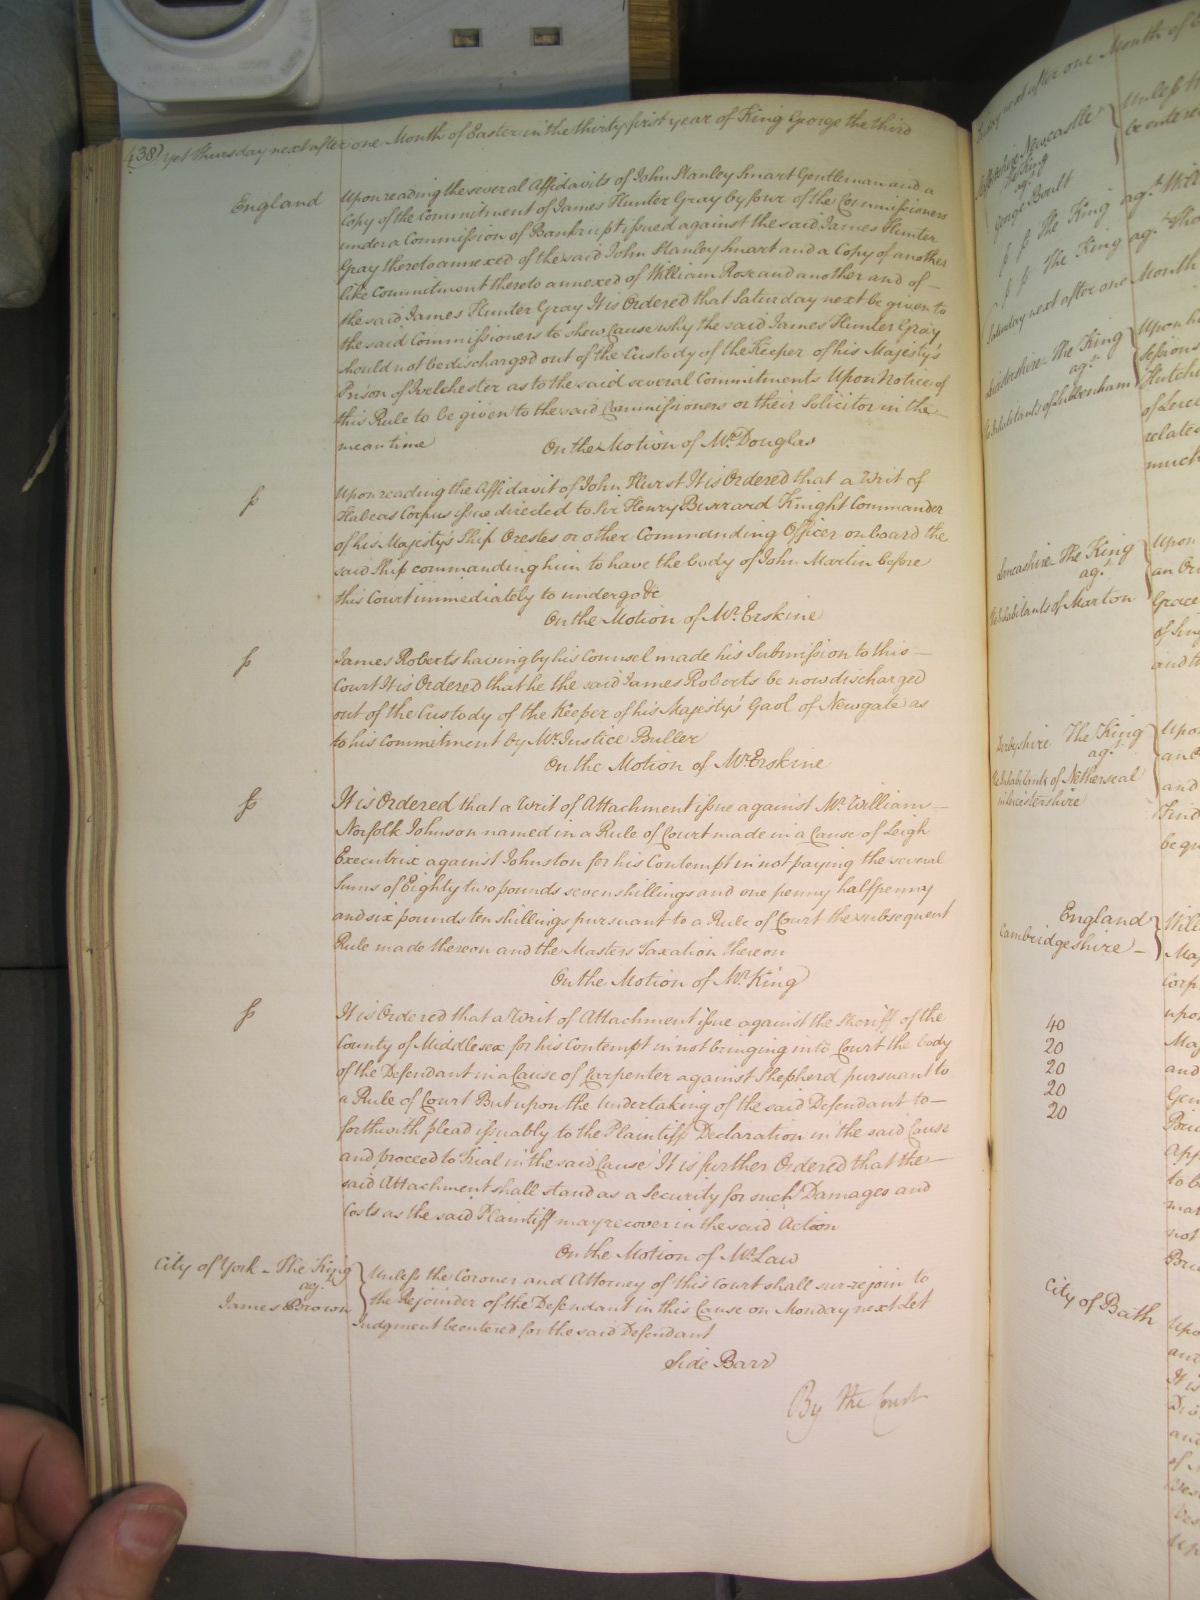 438) yet Thursday next after one Month of Easter in the thirty first year of King George the third
England
Upon reading the several Affidavits of John Stanley Smart Gentleman and a
Copy of the Commitment of James Hunter Gray by four of the Commissioners
under a Commission of Bankrupt issued against the said James Hunter
Gray thereto annexed of the said John Stanley Smart and a Copy of another
like Commitment thereto annexed of William Rose and another and of –
the said James Hunter Gray It is Ordered that Saturday next be given to
the said Commissioners to shew Cause why the said James Hunter Gray
should not be discharged out of the Custody of the Keeper of his Majesty's
Prison of Ivelchester as to the said several Commitments Upon Notice of
this Rule to be given to the said Commissioners or their Solicitor in the –
mean time
On the Motion of Mr. Douglas
Upon reading the Affidavit of John Hurst It is Ordered that a Writ of
Habeas Corpus issue directed to Sir Henry Burrard Knight Commander
of his Majesty's Ship Orestes or other Commanding Officer on board the
said Ship commanding him to have the body of John Martin before
this Court immediately to undergo &c
On the Motion of Mr. Erskine
James Roberts having by his Counsel made his Submission to this –
Court It is Ordered that he the said James Roberts be now discharged
out of the Custody of the Keeper of his Majesty's Gaol of Newgate as
to his Commitment by Mr. Justice Buller
On the Motion of Mr. Erskine
It is Ordered that a Writ of Attachment issue against Mr. William –
Norfolk Johnson named in a Rule of Court made in a Cause of Leigh
Executrix against Johnston for his Contempt in not paying the several
Sums of Eighty two pounds seven shillings and one penny halfpenny
and six pounds ten shillings pursuant to a Rule of Court the subsequent
Rule made thereon and the Masters Taxation thereon
On the Motion of Mr. King
It is Ordered that a Writ of Attachment issue against the Sheriff of the
County of Middlesex for his Contempt in not bringing into Court the body
of the Defendant in a Cause of Carpenter against Shepherd pursuant to
a Rule of Court But upon the Undertaking of the said Defendant to –
forthwith plead issuably to the Plaintiffs Declaration in the said Cause
and proceed to Trial in the said Cause It is further Ordered that the –
said Attachment shall stand as a Security for such Damages and
Costs as the said Plaintiff may recover in the said Action
On the Motion of Mr. Law
City of York – The King
agt.
James Brown
Unless the Coroner and Attorney of this Court shall sur-rejoin to
the Rejoinder of the Defendant in this Cause on Monday next Let
Judgment be entered for the said Defendant
Side Barr
By the Court
Newcastle
The King
agt.
George Boult
The King agt. Will
The King agt. Tho
Saturday next after one Month
The King
agt.
Inhabitants of Lubbenham
Upon
Sessions
Hutch
of Leice
relate
much
Lancashire – The King
agt.
Inhabitants of Marton
Upon
an Or
Grace
Derbyshire The King
agt.
Inhabitants of Netherseal
in Leicestershire
Upo
and
England
Cambridgeshire –
40
20
20
20
20
City of Bath